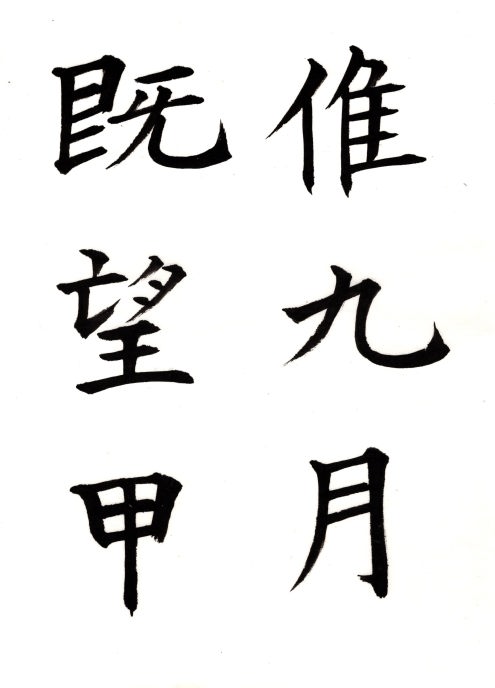 倠九月
既望甲